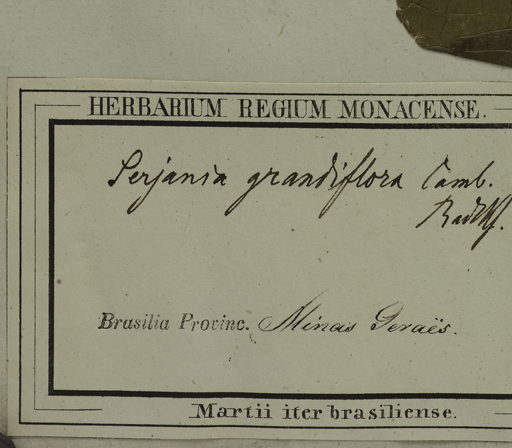 HERBARIUM REGIUM MONACENSE.
Serjania grandiflora Camb.
Radlkf.
Brasilia Provinc. Minas Geraës.
Martii iter brasiliense.